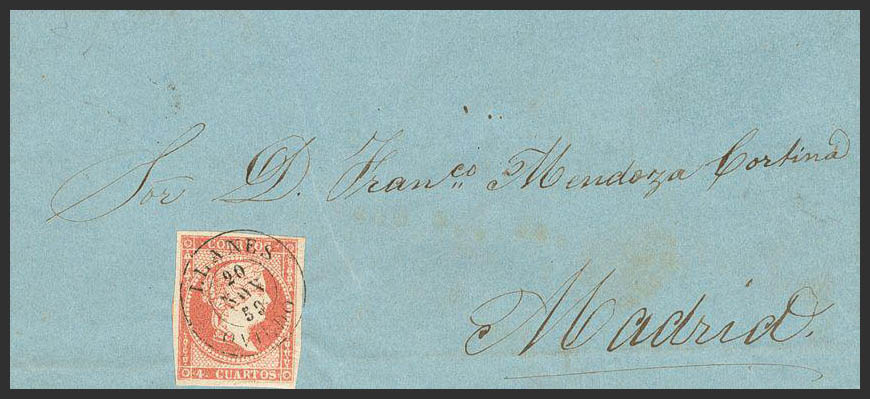 Sor D. Franco Mendoza Cortina
Madrid.
CORREOS
LLANES
20
NOV
59
OVIEDO
4 CUARTOS